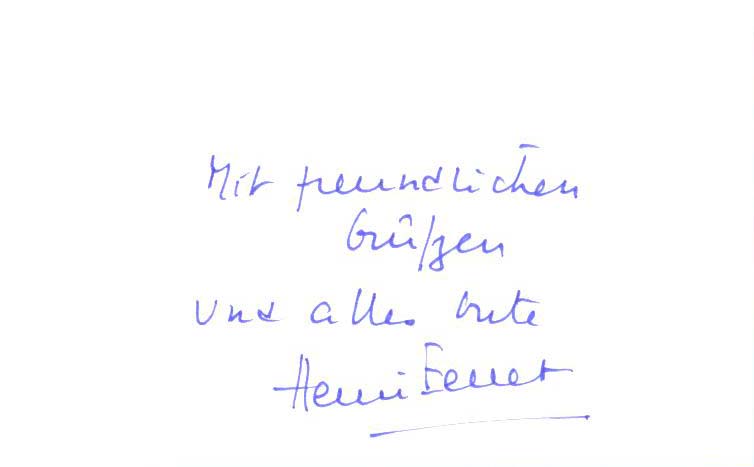 Mit freundlichen
Grüßen
und alles Gute
Henri